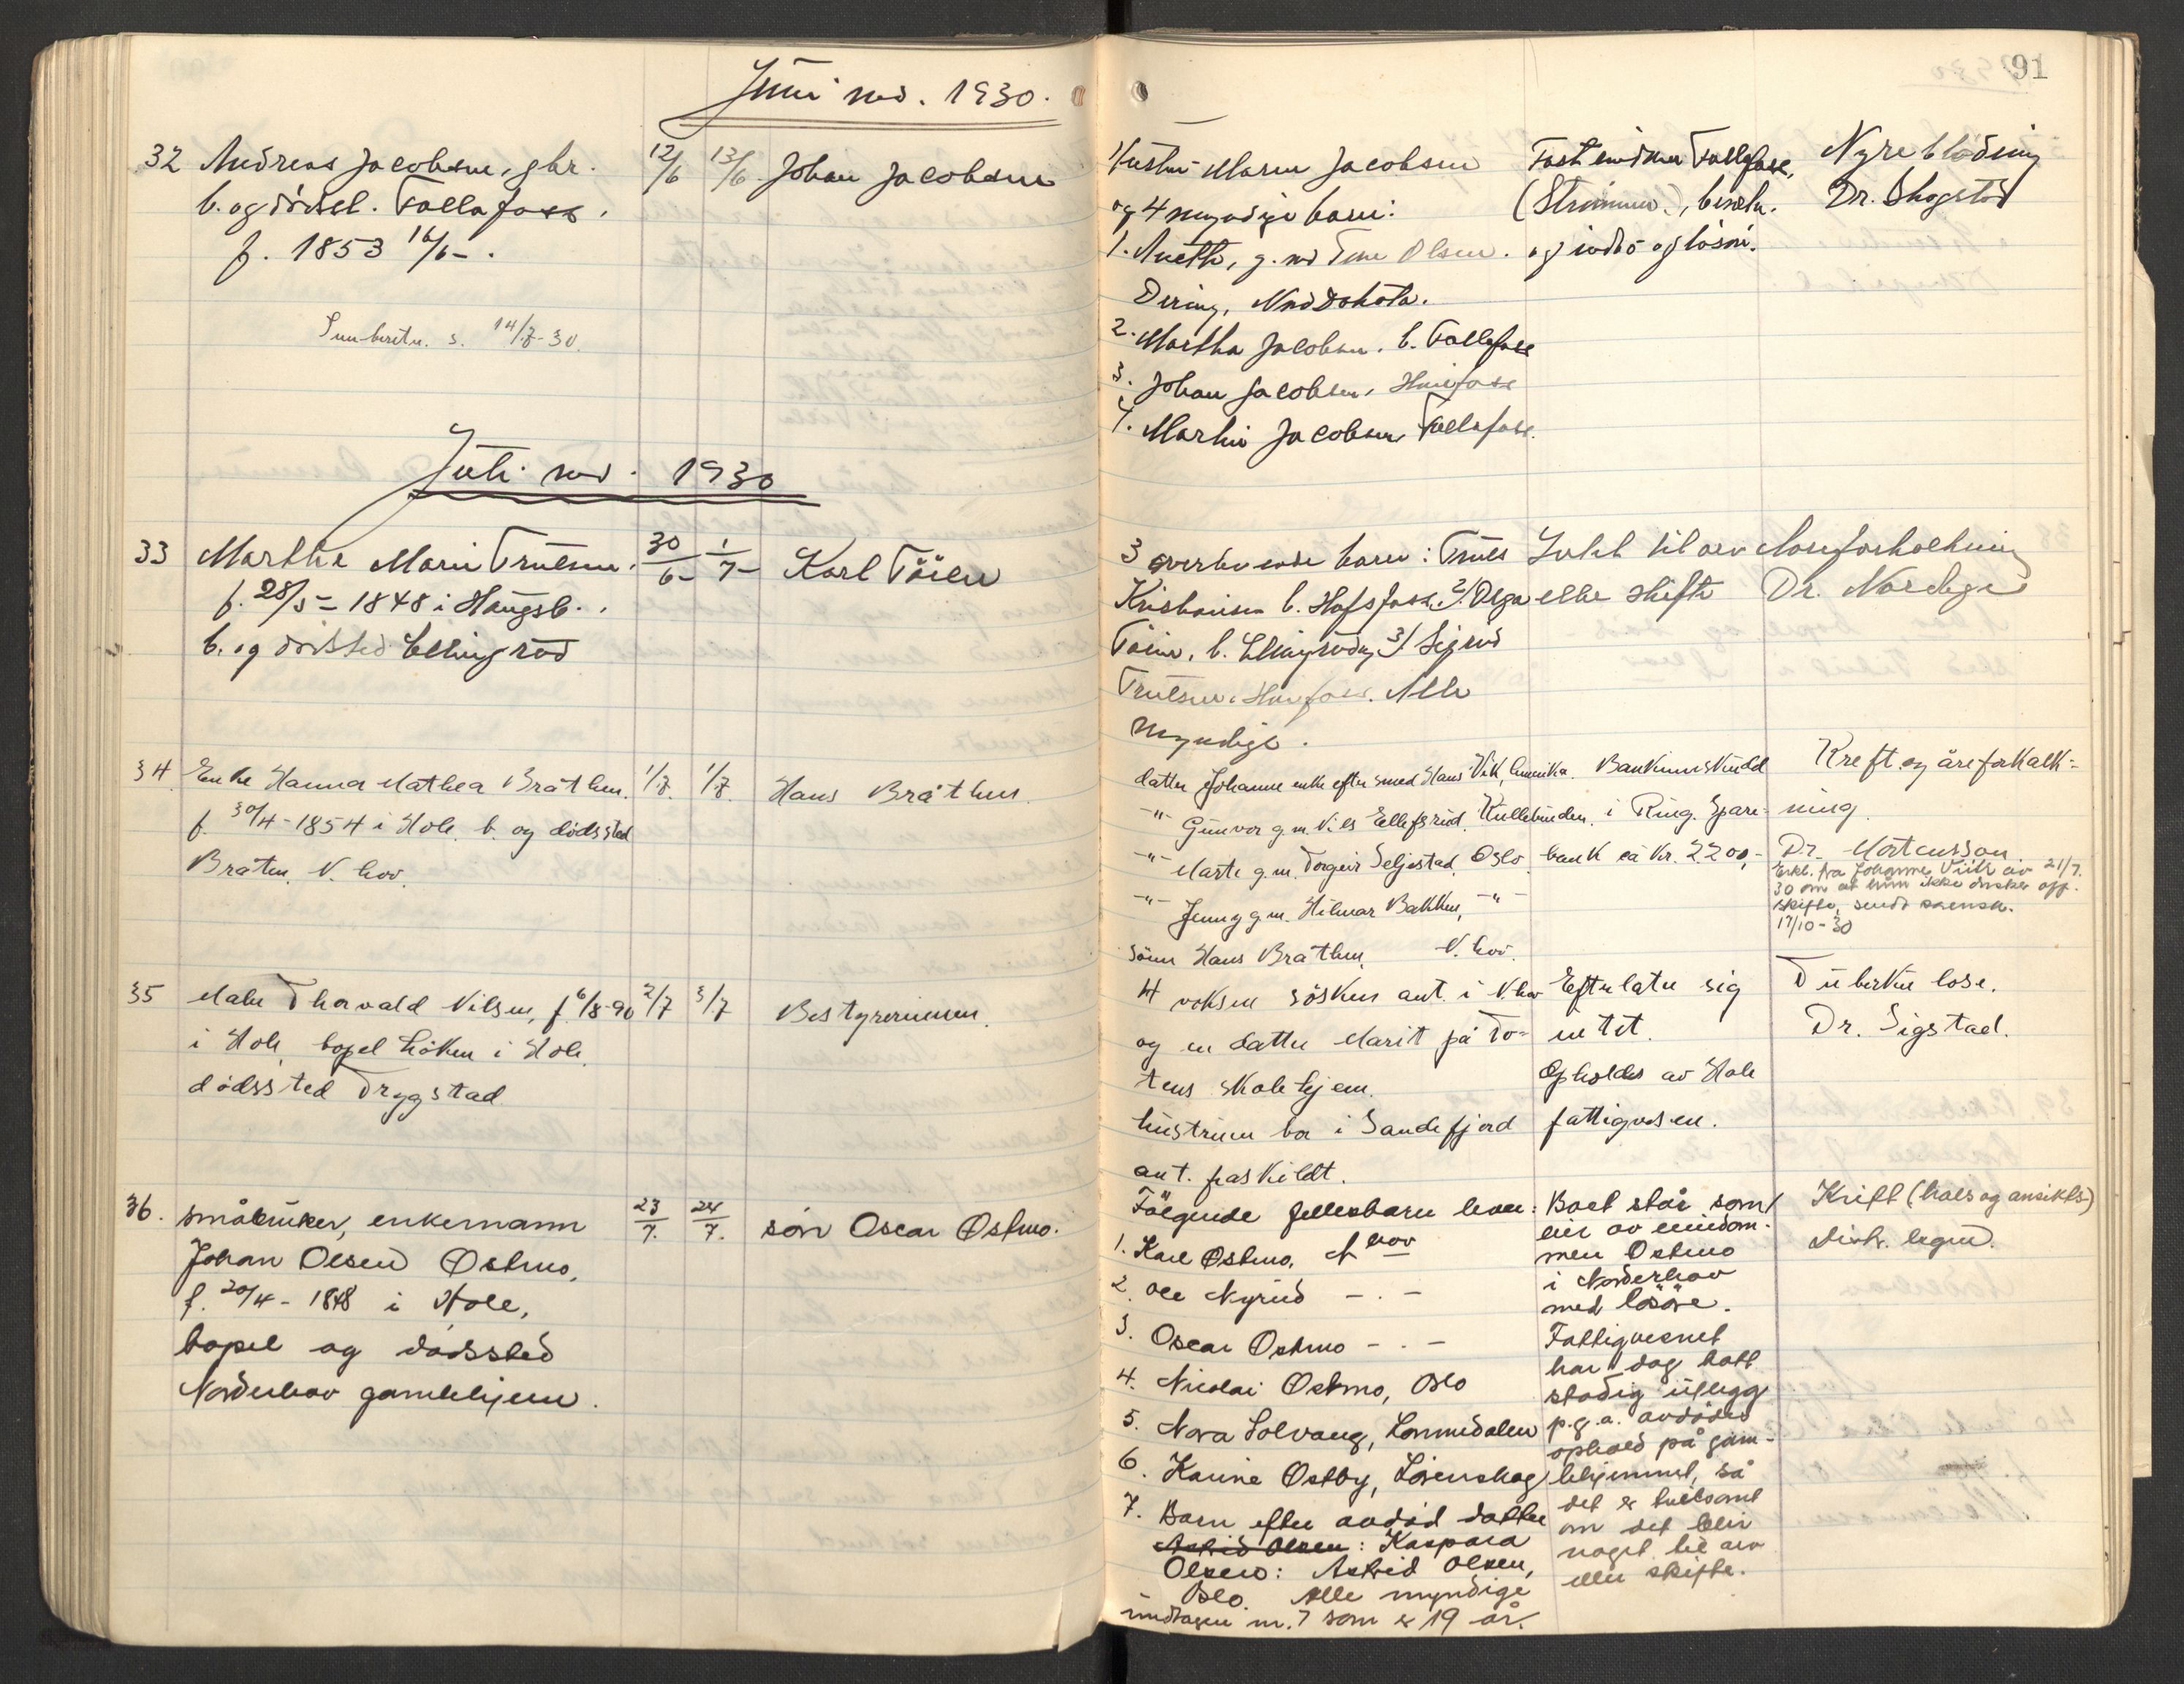 91
Juni md. 1930.
32 Andreas Jacobsen, gbr. 12/6 13/6 Johan Jacobsen
b. og dödsst. Follafoss.
f. 1853 16/6-.
14/7-30.
Hustru Maren Jacobsen
og 4 myndige barn:
1. Anette, g. m. Tom Olsen.
Dering, Norddakota.
2. Martha Jacobsen. b. Follafoss
3. Johan Jacobsen, Hönefoss
4. Martin Jacobsen Follafoss.
Fast eiendom Follafoss,
og indbo og lösöre.
Nyreblödning
Dr. Skogstad
Juli md. 1930
33 Marthe Marie Trulsen. 30/6- 1/7- Karl Töien
f. 28/5- 1848 i Haugsb..
b. og dödssted Ellingsrud
3 overlevende barn: Truls
Kristiansen b. Hofsfoss. 2/ Olga
Töien, b. Ellingsrud, 3/ Sigrid
Trulsen, Hönefoss. Alle
myndige.
Intet til arv
eller skifte
Åreforkalkning
Dr. Nordlie
34 Enke Hanna Mathea Bråthen. 1/7. 1/7. Hans Bråthen.
f. 30/4-1854 i Hole. b. og dödssted
Bråten, N. hov.
datter Johanne enke efter smed Hans Vik, Amerika.
-"- Gunvor g. m. Nils Ellefsrud, Kullebunden.
-"- Marte g. m. Torgeir Seljestad, Oslo.
-"- Jenny g. m. Hilmar Bakken, -"-
sönn Hans Bråthen, N. hov.
Bankinnskudd
i Ring. Spare-
bank ca kr. 2200,-
Kreft og åreforkalk-
ning.
Dr. Mortensson
Erkl. fra Johanne Viik av 21/7.
30 om at hun ikke önsker off.
skifte, sendt sorensk.
17/10-30
35 Maler Thorvald Nilsen, f. 6/8-90 2/7 3/7 Bestyrerinnen.
i Hole, bopel Löken i Hole
dödssted Trygstad
4 voksne sösken ant. i N. hov
og en datter Marit på To-
tens skolehjem.
hustruen bor i Sandefjord
ant. fraskildt.
Efterlater sig
intet.
Opholdes av Hole
fattigvesen.
Tuberkulose.
Dr. Sigstad.
36. småbruker, enkemann 23/7. 24/7. sön Oscar Östmo.
Johan Olsen Östmo,
f. 20/4- 1848 i Hole,
bopel og dödssted
Norderhov gamlehjem.
Fölgende fellesbarn lever:
1. Karl Östmo, N hov
2. Ole Nyrud - . -
3. Oscar Östmo - . -
4. Nicolai Östmo, Oslo
5. Nora Solvang, Lommedalen
6. Karine Östby, Lörenskog
7. Barn efter avdöd datter
Astrid Olsen: Kaspara
Olsen: Astrid Olsen,
Oslo. Alle myndige
undtagen nr. 7 som er 19 år.
Boet står som
eier av eiendom-
men Östmo
i Norderhov
med lösöre.
Fattigvesnet
har dog hatt
stadig utlegg
p.g.a. avdödes
ophold på gam-
lehjemmet, så
det er tvilsomt
om det blir
noget til arv
eller skifte.
Kreft (hals og ansikts-)
distr. legen.